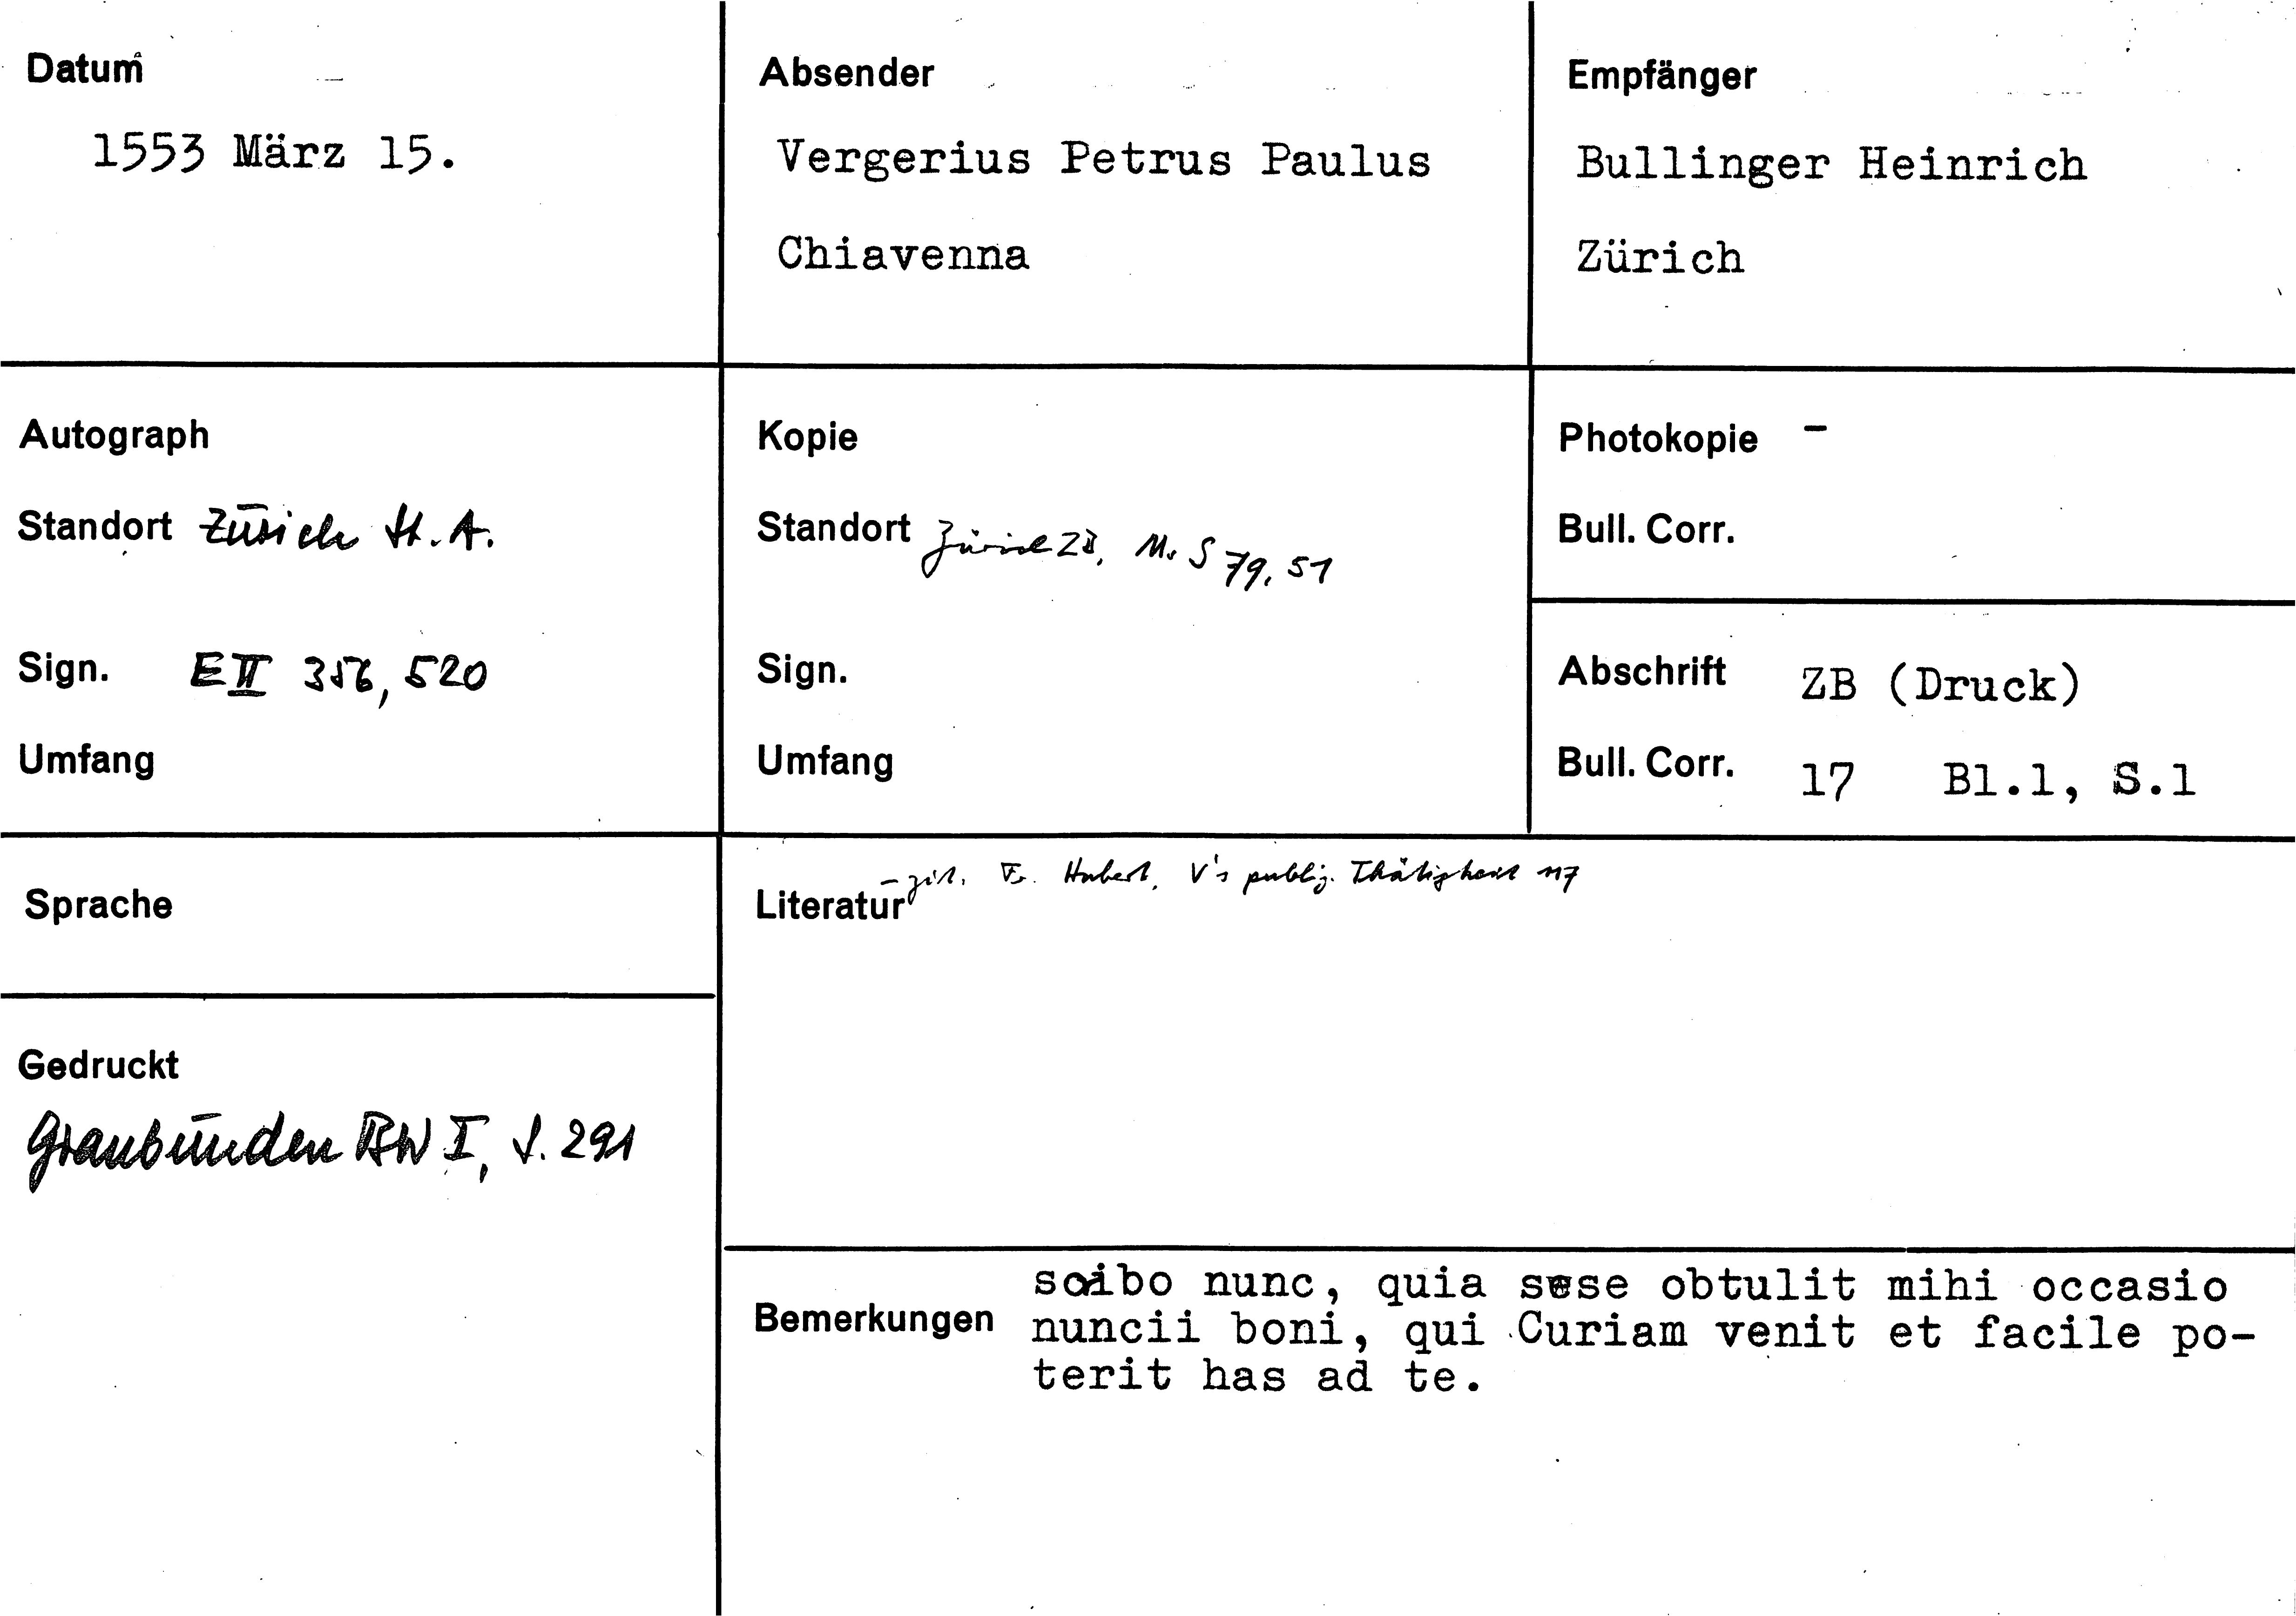 Datum
1553 März 15.
Absender
Vergerius Petrus Paulus
Chiavenna
Empfänger
Bullinger Heinrich
Zürich
Autograph
Standort Zürich St. A.
Sign. E II 356, 520
Umfang
Kopie
Standort Zürich ZB, Ms S 79, 51
Sign.
Umfang
Photokopie –
Bull. Corr.
Abschrift ZB (Druck)
Bull. Corr. 17 Bl.1, S.1
Sprache
Gedruckt
Graubünden BW I, S. 291
Literatur – zit. Fr. Hubert, V's publiz. Thätigkeit 117
Bemerkungen
scibo nunc, quia sese obtulit mihi occasio
nuncii boni, qui Curiam venit et facile po-
terit has ad te.